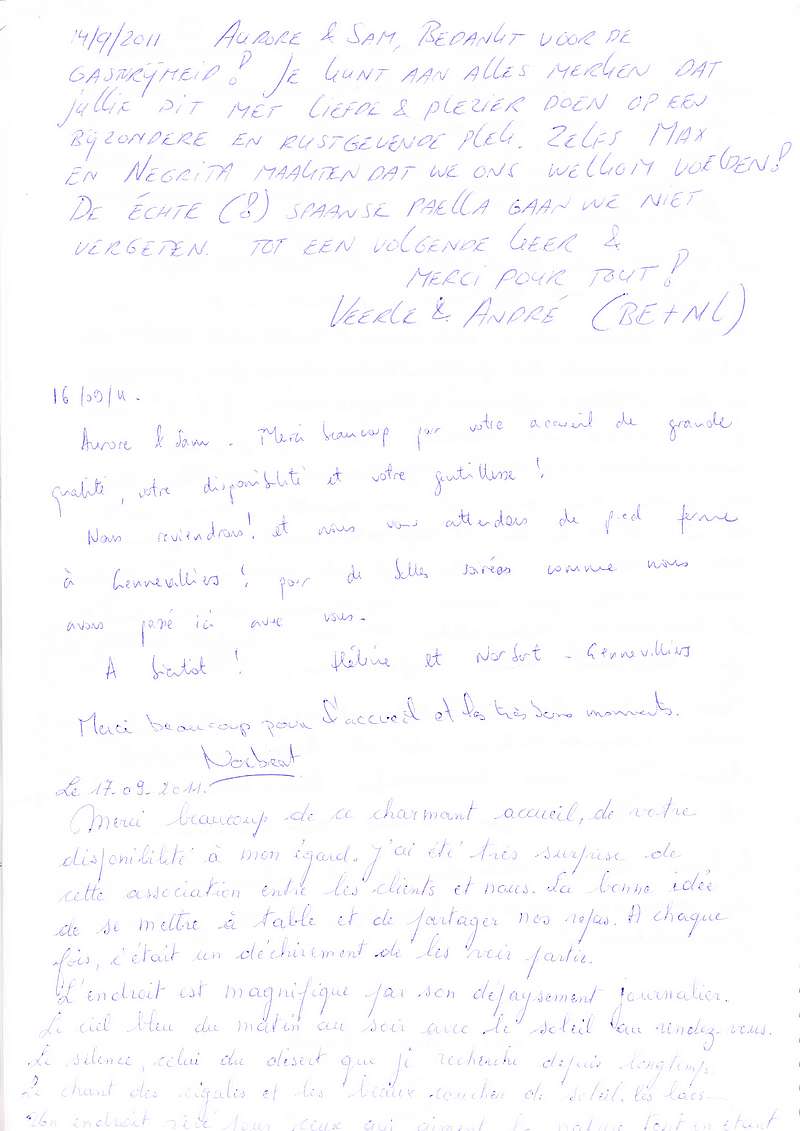 14/9/2011 AURORE & SAM, BEDANKT VOOR DE
GASTVRIJHEID! JE KUNT AAN ALLES MERKEN DAT
JULLIE DIT MET LIEFDE & PLEZIER DOEN OP EEN
BIJZONDERE EN RUSTGEVENDE PLEK. ZELFS MAX
EN NEGRITA MAAKTEN DAT WE ONS WELKOM VOELDEN!
DE ÉCHTE (!) SPAANSE PAELLA GAAN WE NIET
VERGETEN. TOT EEN VOLGENDE KEER &
MERCI POUR TOUT!
VEERLE & ANDRÉ (BE+NL)
16/09/11.
Aurore & Sam. Merci beaucoup par votre accueil de grande
qualité, votre disponibilité et votre gentillesse!
Nous reviendrons! et nous vous attendons de pied ferme
à Gennevilliers! pour de belles soirées comme nous
avons passé ici avec vous.
A bientôt! Hélène et Norbert - Gennevilliers
Merci beaucoup pour l'accueil et les très bons moments.
Norbert
Le 17.09.2011.
Merci beaucoup de ce charmant accueil, de votre
disponibilité à mon égard. J'ai été très surprise de
cette association entre les clients et nous. La bonne idée
de se mettre à table et de partager nos repas. A chaque
fois, c'était un déchirement de les voir partir.
L'endroit est magnifique par son dépaysement journalier.
Le ciel bleu du matin au soir avec le soleil au rendez-vous.
Le silence, celui du désert que je recherche depuis longtemps.
Le chant des cigales et les beaux coucher de soleil. les lacs
Un endroit pour ceux qui aiment la nature tout en étant